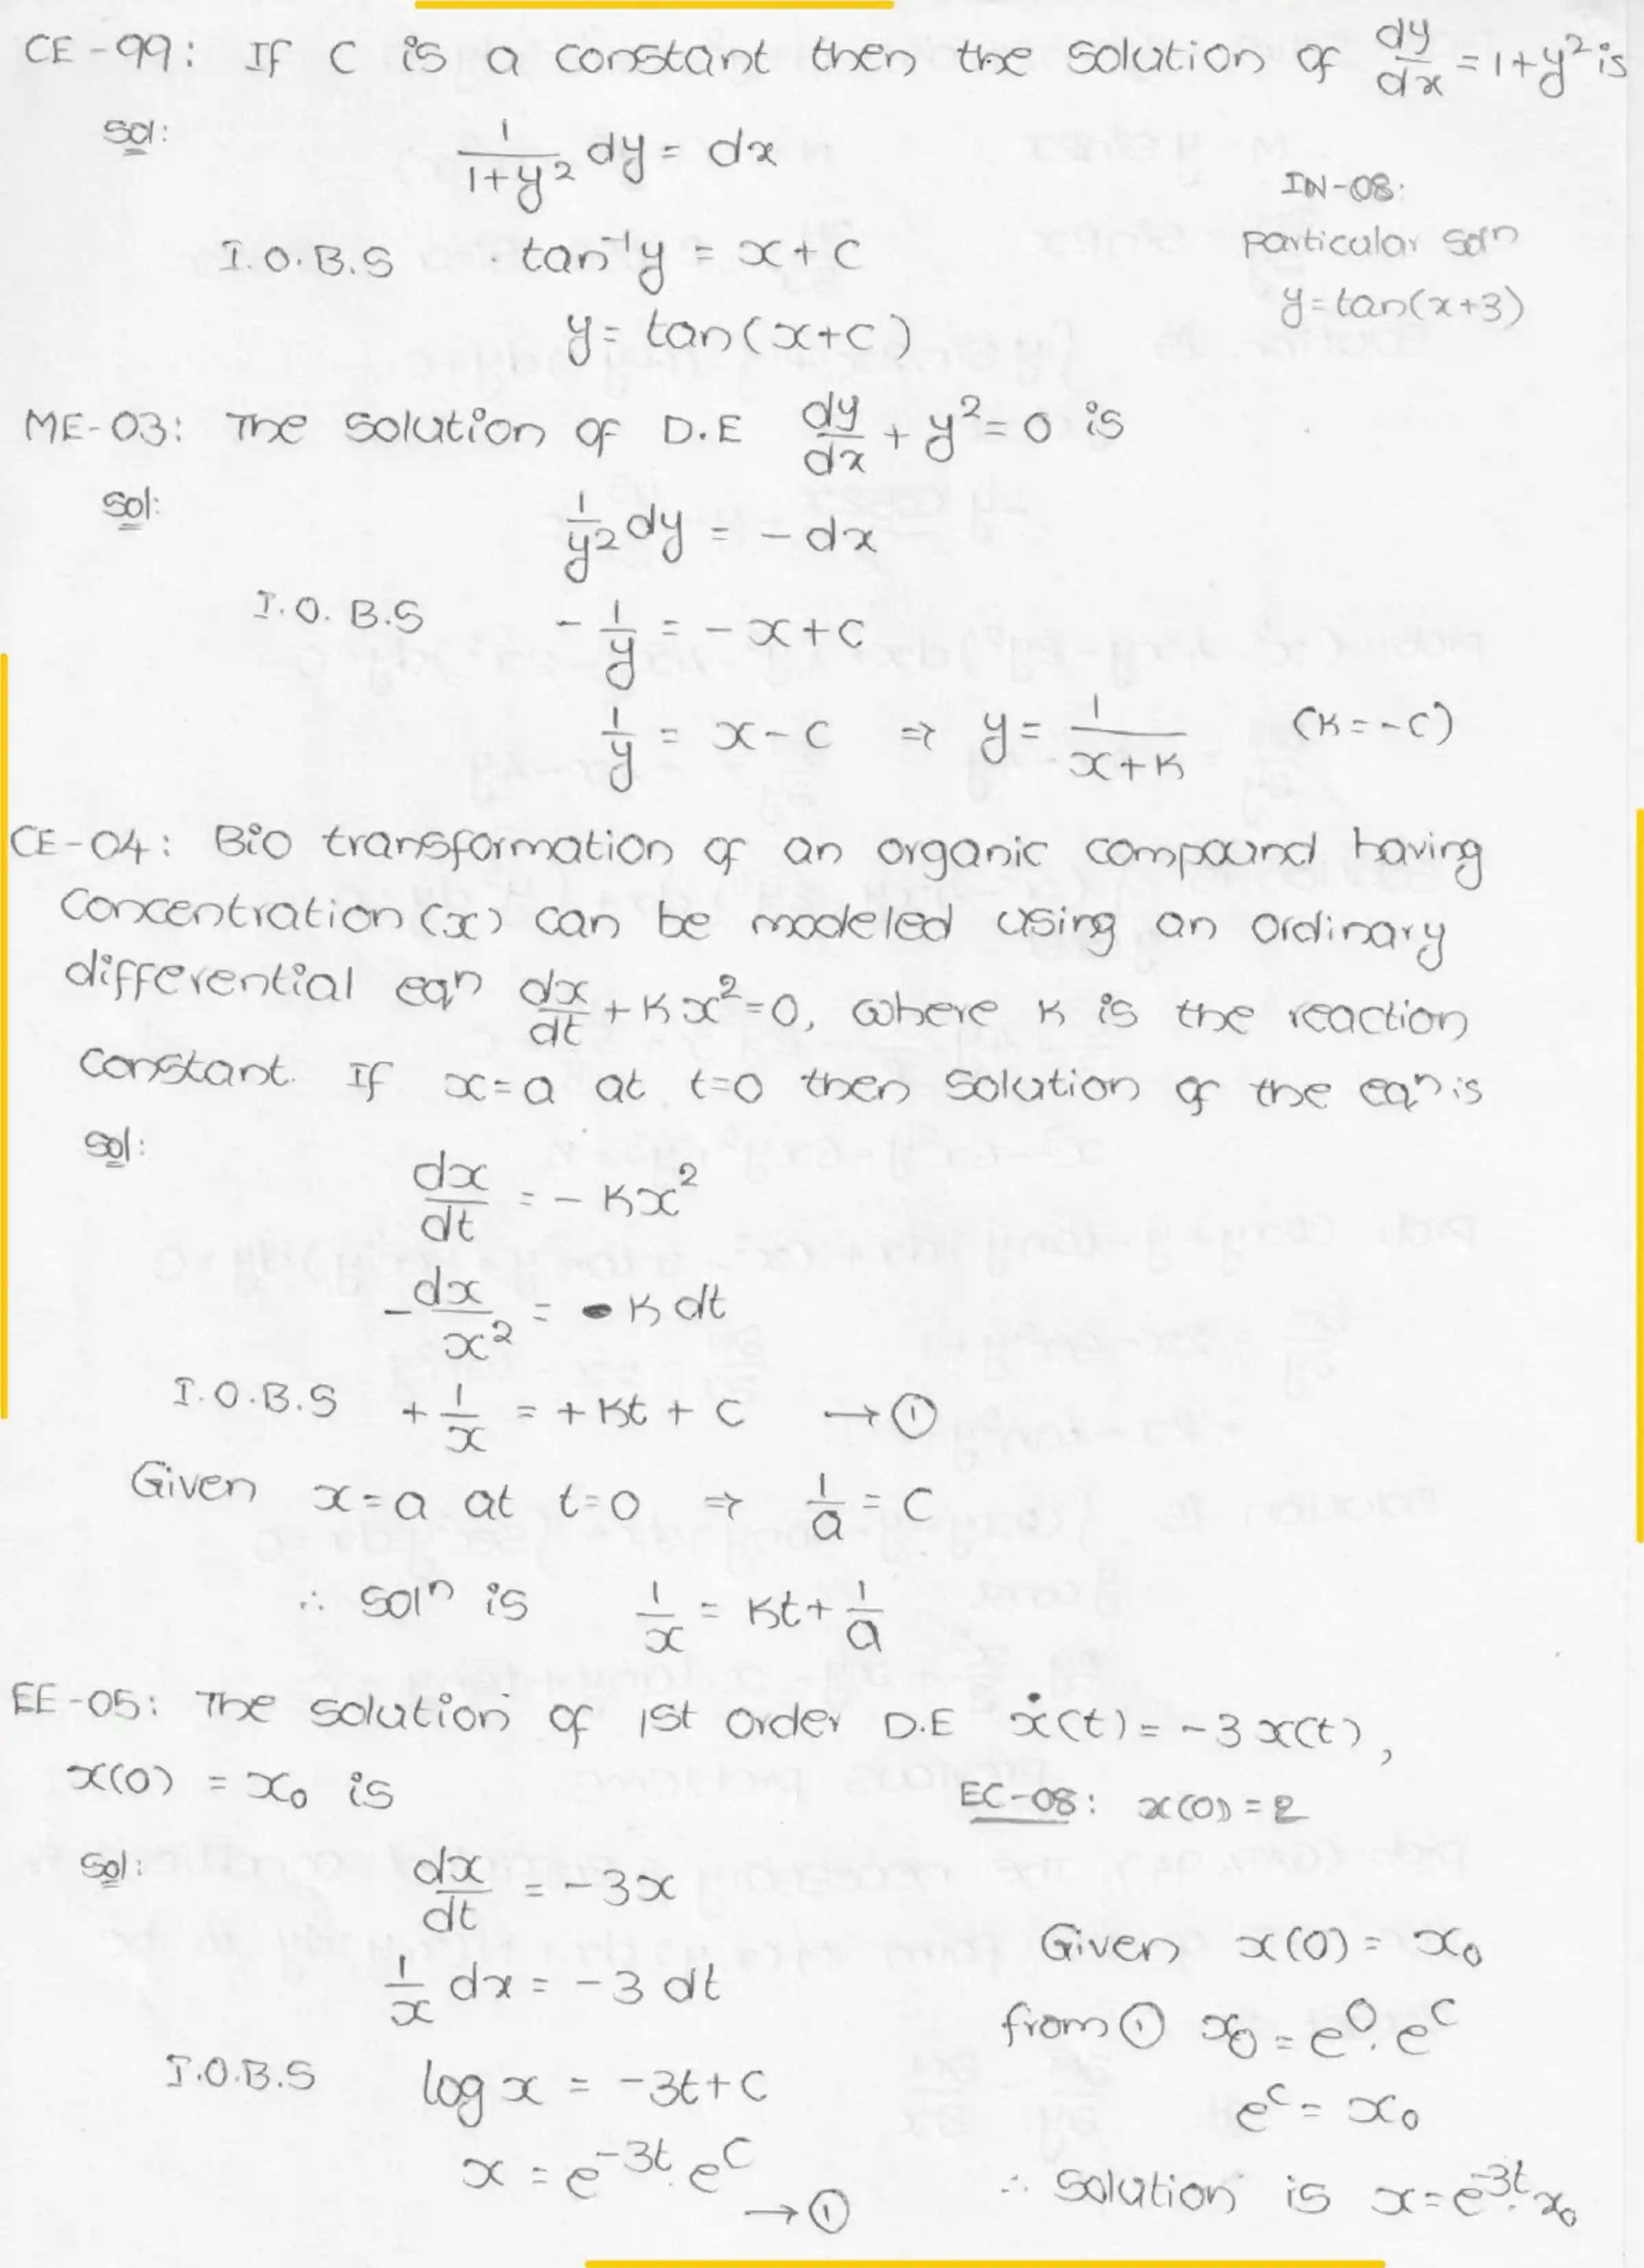 CE-99: If C is a constant then the solution of dy/dx = 1+y² is
Sol:
1/(1+y²) dy = dx
IN-08:
I.O.B.S tan⁻¹y = x+c
particular soln
y = tan(x+3)
y = tan(x+c)
ME-03: The solution of D.E dy/dx + y² = 0 is
Sol:
1/y² dy = -dx
I.O.B.S -1/y = -x+c
1/y = x-c ⇒ y = 1/(x+k) (k=-c)
CE-04: Bio transformation of an organic compound having
concentration (x) can be modeled using an ordinary
differential eqn dx/dt + kx² = 0, where k is the reaction
constant. If x=a at t=0 then solution of the eqn is
Sol:
dx/dt = -kx²
-dx/x² = k dt
I.O.B.S +1/x = +kt + c → ①
Given x=a at t=0 ⇒ 1/a = c
∴ soln is 1/x = kt + 1/a
EE-05: The solution of 1st order D.E ẋ(t) = -3x(t),
x(0) = x₀ is
EC-08: x(0) = 2
Sol:
dx/dt = -3x
1/x dx = -3 dt
I.O.B.S log x = -3t+c
x = e⁻³ᵗ.eᶜ → ①
Given x(0) = x₀
from ① x₀ = e⁰.eᶜ
eᶜ = x₀
∴ solution is x = e⁻³ᵗ.x₀